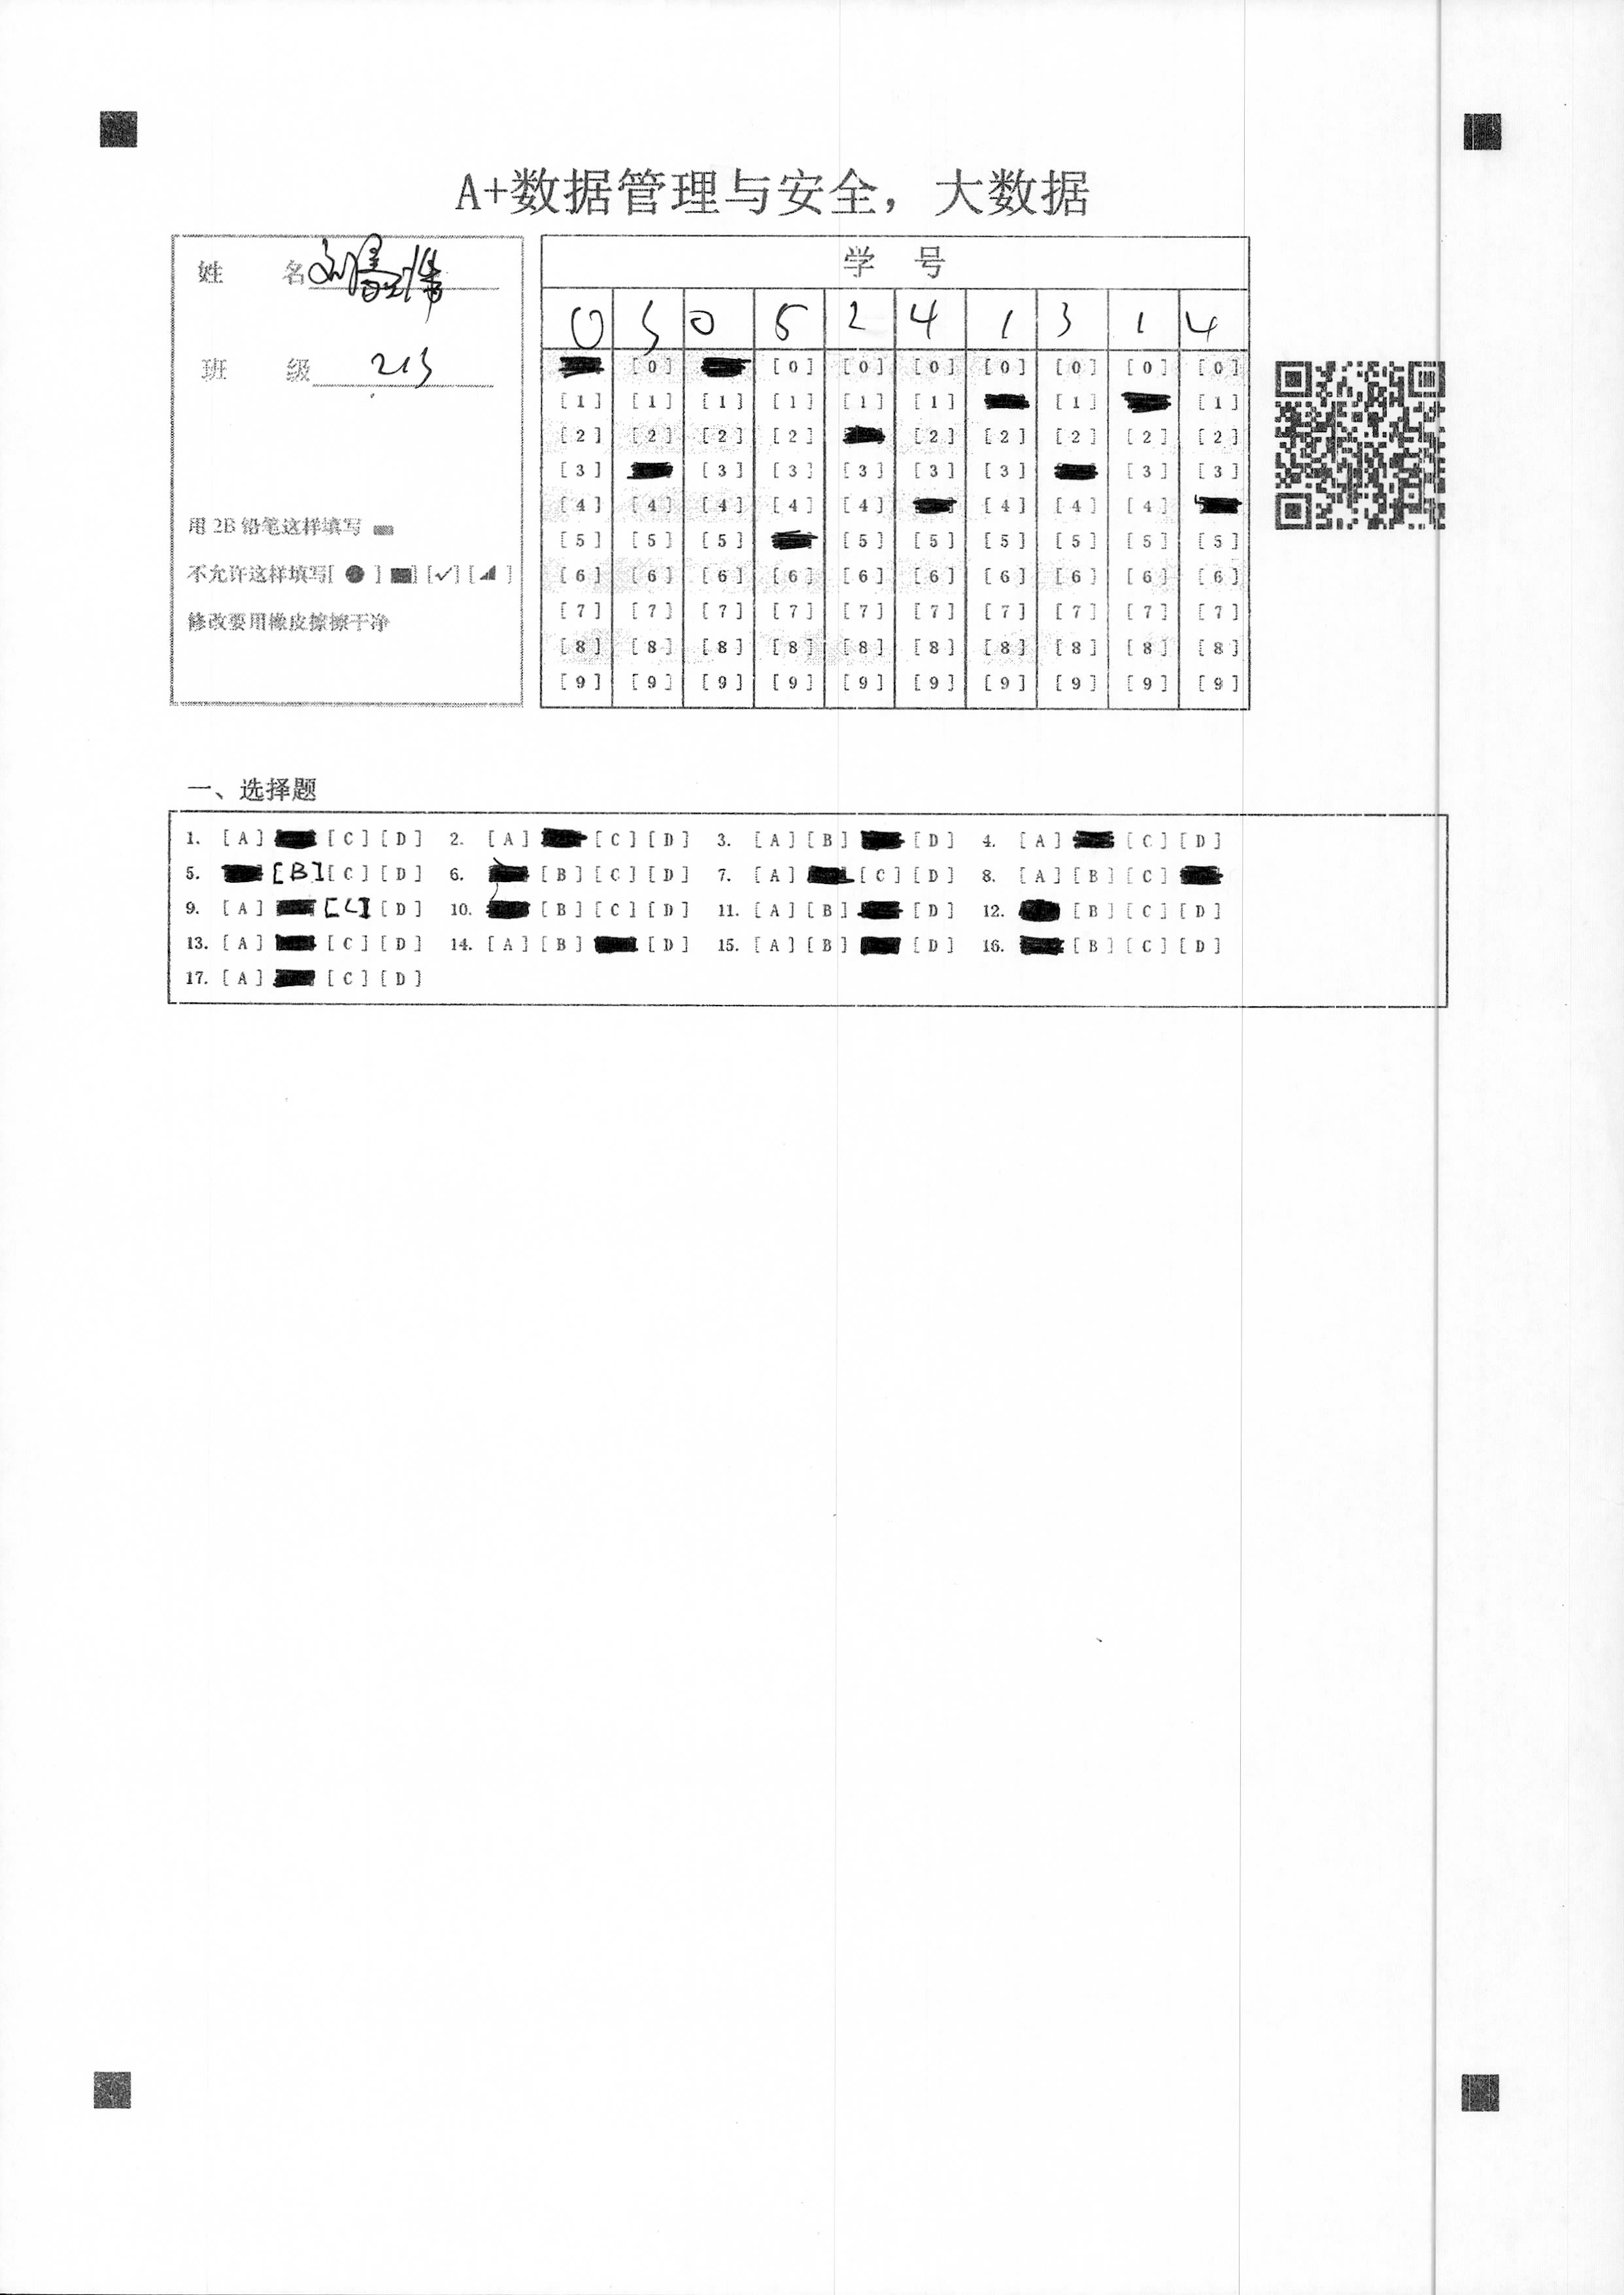 A+数据管理与安全，大数据
姓 名 刘
班 级 213
用 2B 铅笔这样填写
不允许这样填写[ ● ] [✓] [ ]
修改要用橡皮擦擦干净
学 号
0 3 0 5 2 4 1 3 1 4
[0] [0] [0] [0] [0] [0] [0] [0]
[1] [1] [1] [1] [1] [1] [1] [1]
[2] [2] [2] [2] [2] [2] [2] [2] [2]
[3] [3] [3] [3] [3] [3] [3] [3]
[4] [4] [4] [4] [4] [4] [4] [4]
[5] [5] [5] [5] [5] [5] [5] [5] [5]
[6] [6] [6] [6] [6] [6] [6] [6] [6] [6]
[7] [7] [7] [7] [7] [7] [7] [7] [7] [7]
[8] [8] [8] [8] [8] [8] [8] [8] [8] [8]
[9] [9] [9] [9] [9] [9] [9] [9] [9] [9]
一、选择题
1. [A] [C] [D] 2. [A] [C] [D] 3. [A] [B] [D] 4. [A] [C] [D]
5. [B] [C] [D] 6. [B] [C] [D] 7. [A] [C] [D] 8. [A] [B] [C]
9. [A] [C] [D] 10. [B] [C] [D] 11. [A] [B] [D] 12. [B] [C] [D]
13. [A] [C] [D] 14. [A] [B] [D] 15. [A] [B] [D] 16. [B] [C] [D]
17. [A] [C] [D]